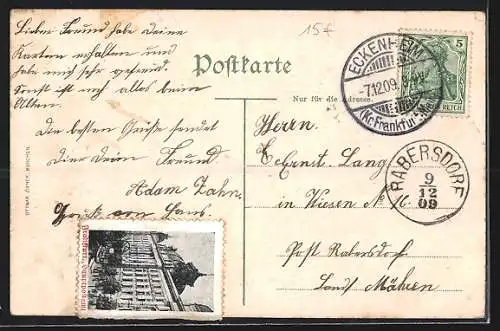 15,-
Lieber Freund habe Deine
Karten erhalten und
habe mich sehr gefreut.
Sonst ist noch alles beim
Alten.
Die besten Grüße sendet
Dir Dein Freund
Adam Zahn.
Gruß an Hans.
OTTMAR ZIEHER, MÜNCHEN.
Postkarte
Nur für die Adresse.
ECKENHEIM
-7.12.09
(Kr. Frankfurt
5
REICH
Herrn
Ernst Lang
in Wiesen No 16
Post Rabersdorf
Land Mähren
RABERSDORF
9
12
09